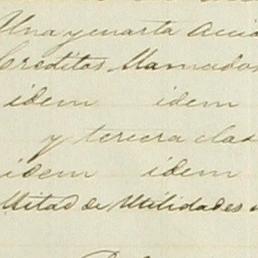 Una y cuarta Acci
Creditos llamados
idem idem
y tercera clas
idem idem
Mitad de Utilidades